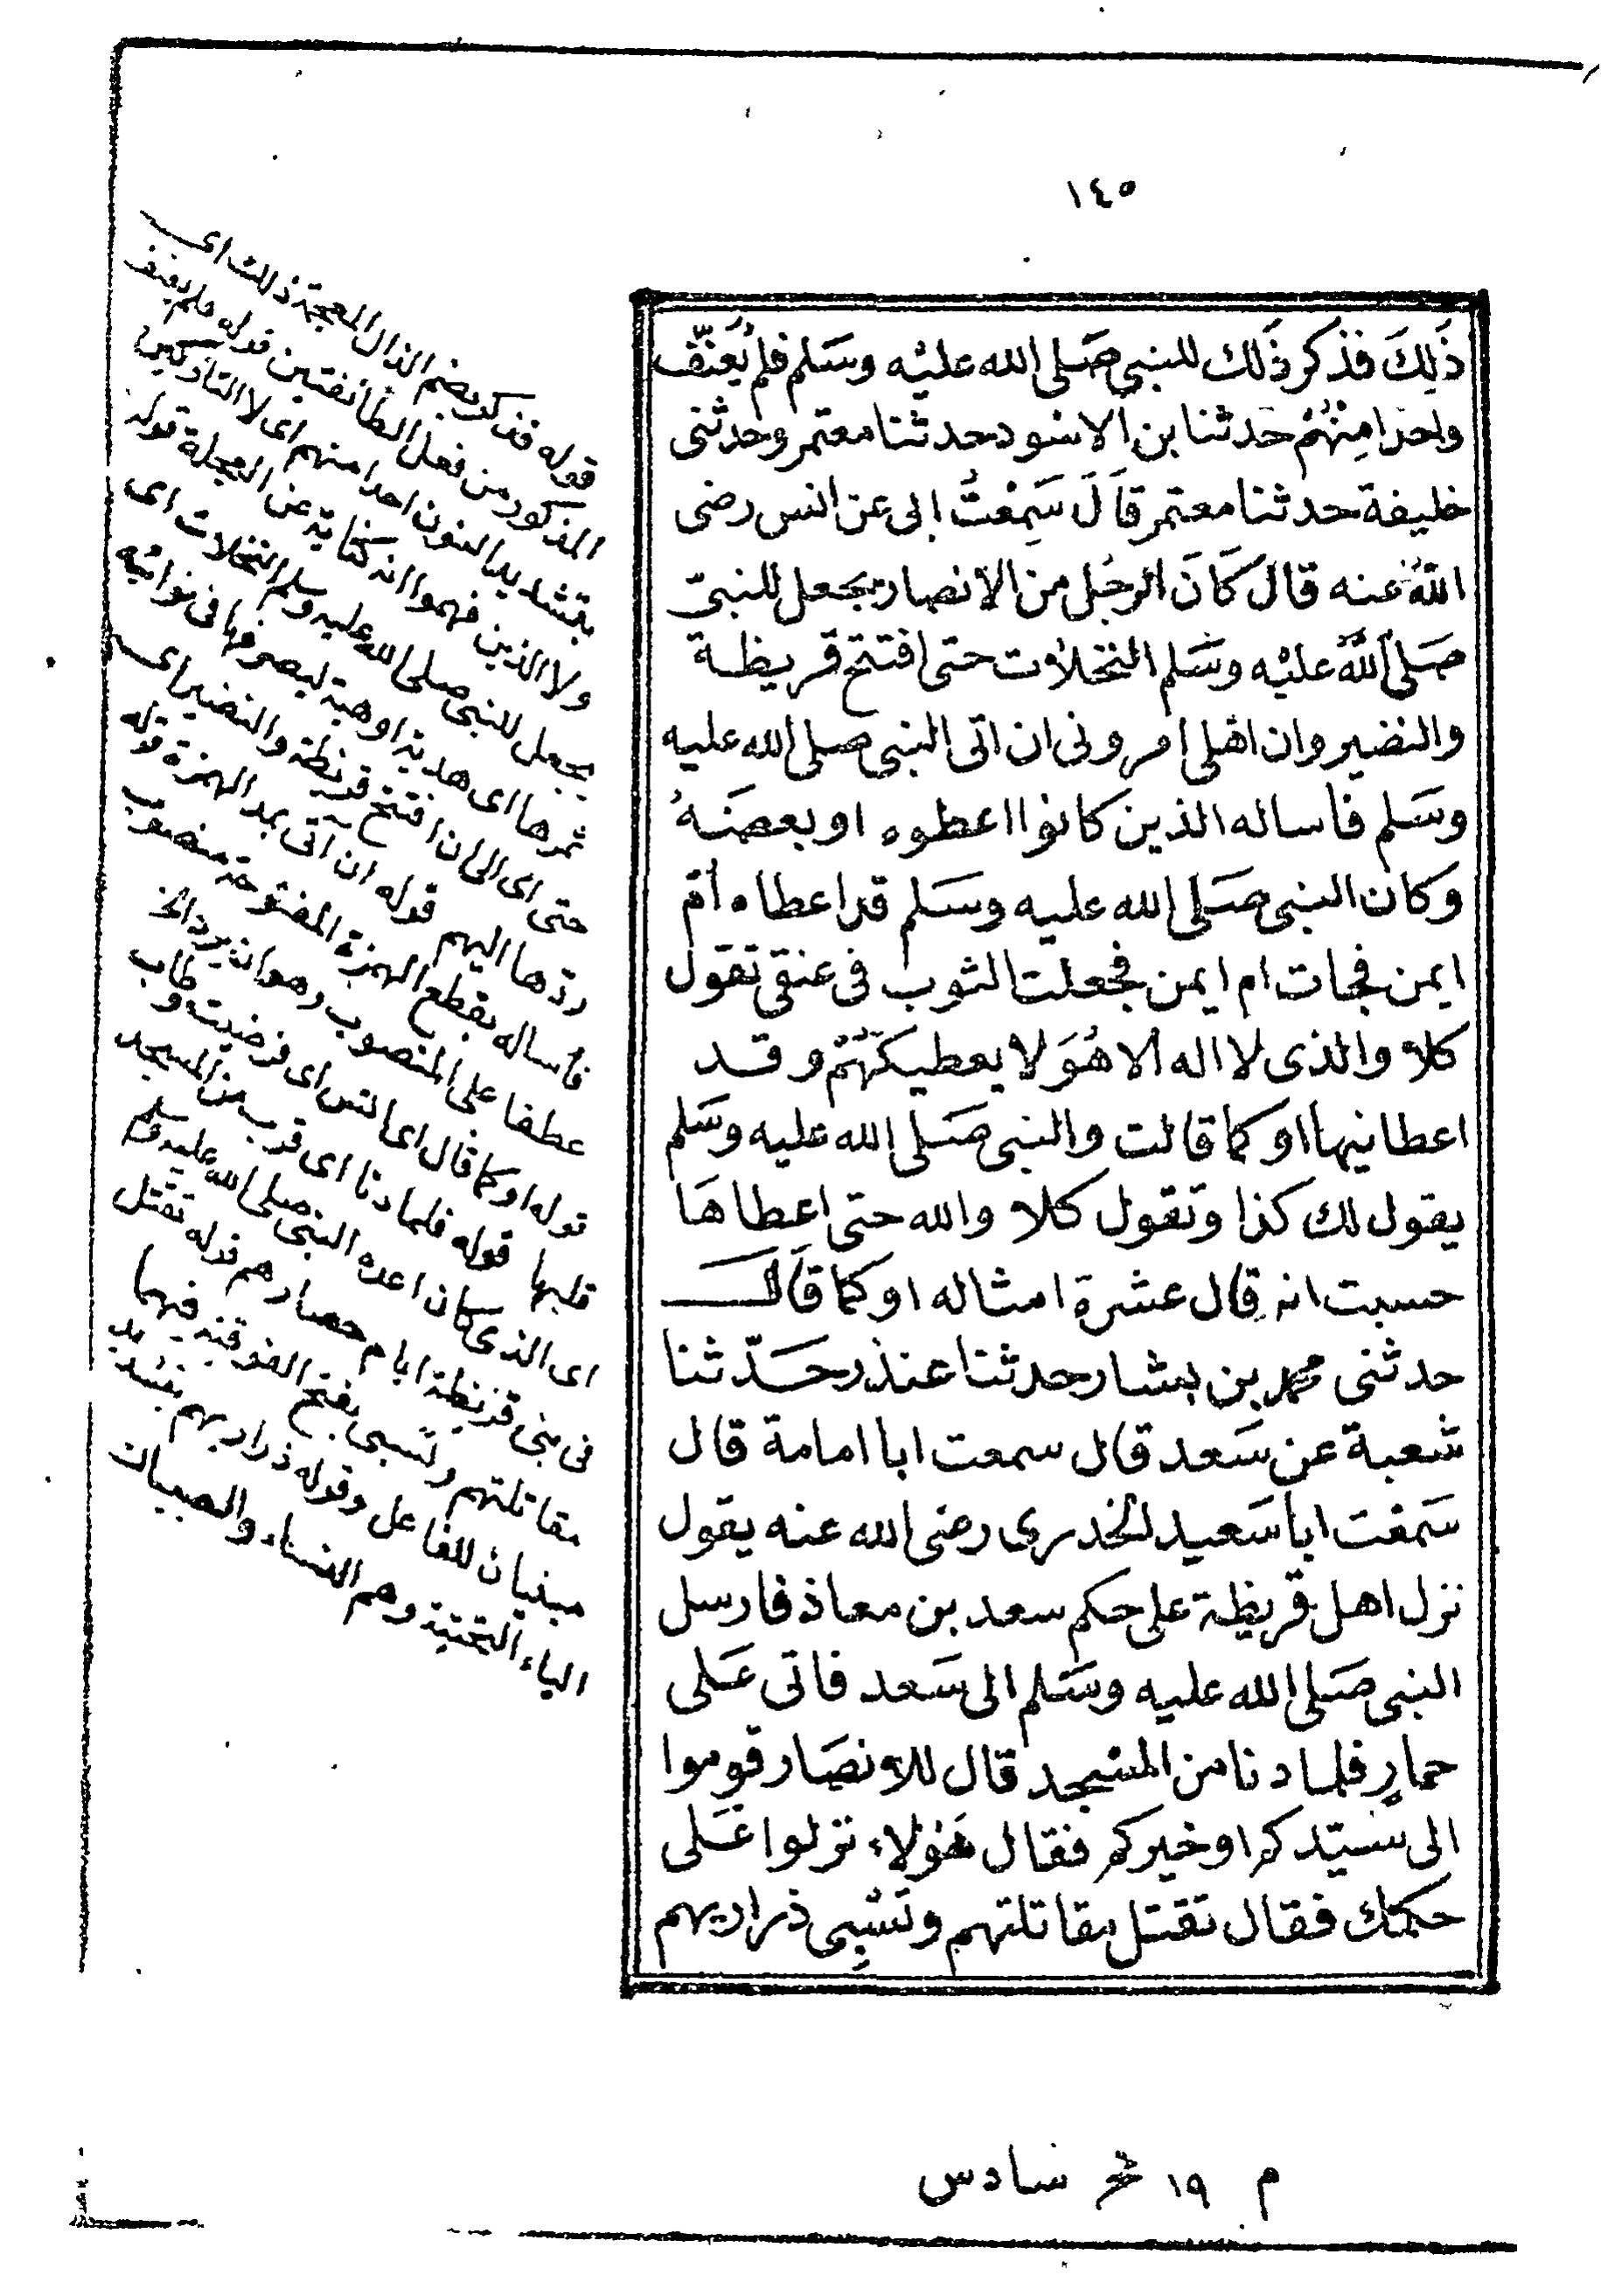 ١٤٥
ذَلِكَ فذكر ذَلك للنبى صَلى الله عليْه وسَلم فلم يُعَنِّف
واحدا مِنْهُمْ حدثنا بن الاسْود حدثنا معتمر وحدثنى
خليفة حدثنا معتمر قَالَ سَمِعْتُ ابى عن انس رضى
اللهُ عنه قال كَانَ الرجُل من الانصار يجعل للنبىّ
صَلى اللهُ عليْه وسَلم النخلات حتى افتتح قريظة
والنضير وان اهْلى امرونى ان اتى النبى صلى الله عليه
وسَلم فأساله الذين كانوا اعطوه او بعضَهُ
وكان النبى صَلى الله عليه وسَلم قد اعطاه أم
ايمن فجات ام ايمن فجعلت الثوب فى عنقى تقول
كلا والذى لا اله الا هُوَ لا يعطيكَهُمْ وقد
اعطانيها او كما قالت والنبى صَلى الله عليه وسَلم
يقول لك كذا وتقول كلا والله حتى اعطاهَا
حسبت انه قال عشرة امثاله او كما قَالَ
حدثنى محمد بن بشار حدثنا غندر حَدّثنا
شعبة عن سَعد قال سمعت ابا امامة قال
سَمعْت ابا سَعيد الخدرى رضى الله عنه يقول
نزل اهل قريظة على حكم سعد بن معاذ فارسل
النبى صَلى الله عليه وسَلم الى سَعد فاتى عَلى
حمارٍ فلما دنا من المسْجد قال للأنصَار قوموا
الى سَيّدكم او خيركم فقال هَؤلاء نزلوا عَلى
حكمك فقال تقتل مقاتلتهم وتسْبِى ذراريهم
قوله فذكر بضم الذال المعجمة ذلك اى
المذكور من فعل الطائفتين قوله فلم يعنف
بتشديد النون احدا منهم اى لا التاركين
ولا الذين فهموا انه كناية عن العجلة قوله
يجعل للنبى صلى الله عليه وسلم النخلات اى
ثمرها اى هدية او هبة ليصرفها فى نوائبه
حتى اى الى ان افتتح قريظة والنضير اى
ردّها اليهم قوله ان آتى بمد الهمزة قوله
فأساله بقطع الهمزة المفتوحة منصوب
عطفا على المنصوب وهو ان يرد الخ
قوله او كما قال اى انس اى فرضيت وطاب
قلبها قوله فلما دنا اى قرب من المسجد
اى الذى كان اعده النبى صلى الله عليه وسلم
فى بنى قريظة ايام حصارهم قوله تقتل
مقاتلتهم وتسبى بفتح الفوقية فيهما
مبنيان للفاعل وقوله ذراريهم بتشديد
الياء التحتية وهم النساء والصبيان
م ١٩ سادس